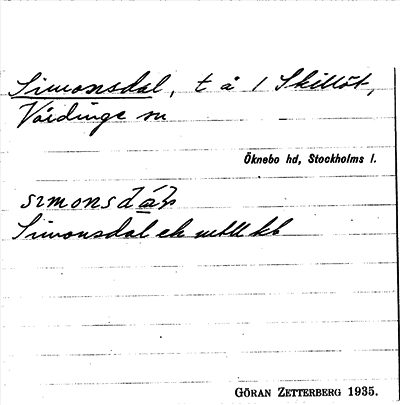 Simonsdal, t å 1 Skillöt,
Vårdinge sn
Öknebo hd, Stockholms l.
Simonsdal ek
GÖRAN ZETTERBERG 1935.